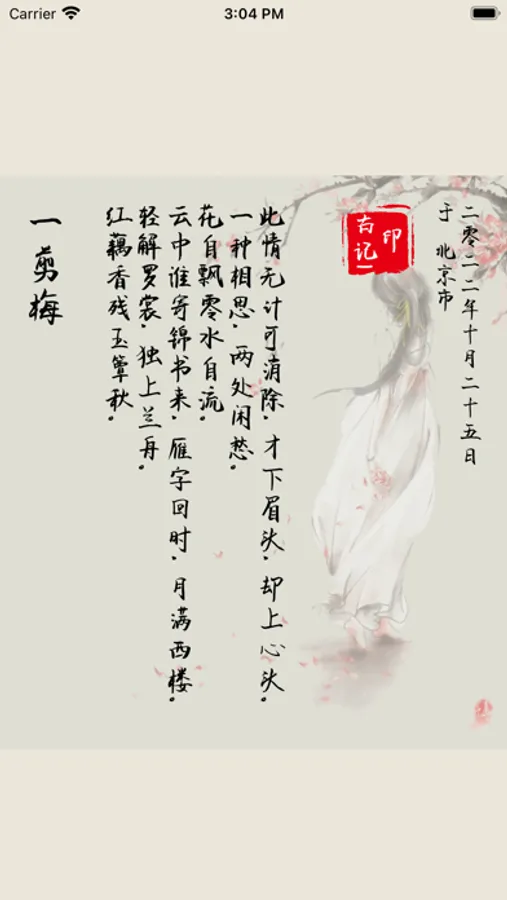 Carrier 3:04 PM
一剪梅
红藕香残玉簟秋。
轻解罗裳，独上兰舟。
云中谁寄锦书来，雁字回时，月满西楼。
花自飘零水自流。
一种相思，两处闲愁。
此情无计可消除，才下眉头，却上心头。
古记
印
于 北京市
二零二二年十月二十五日